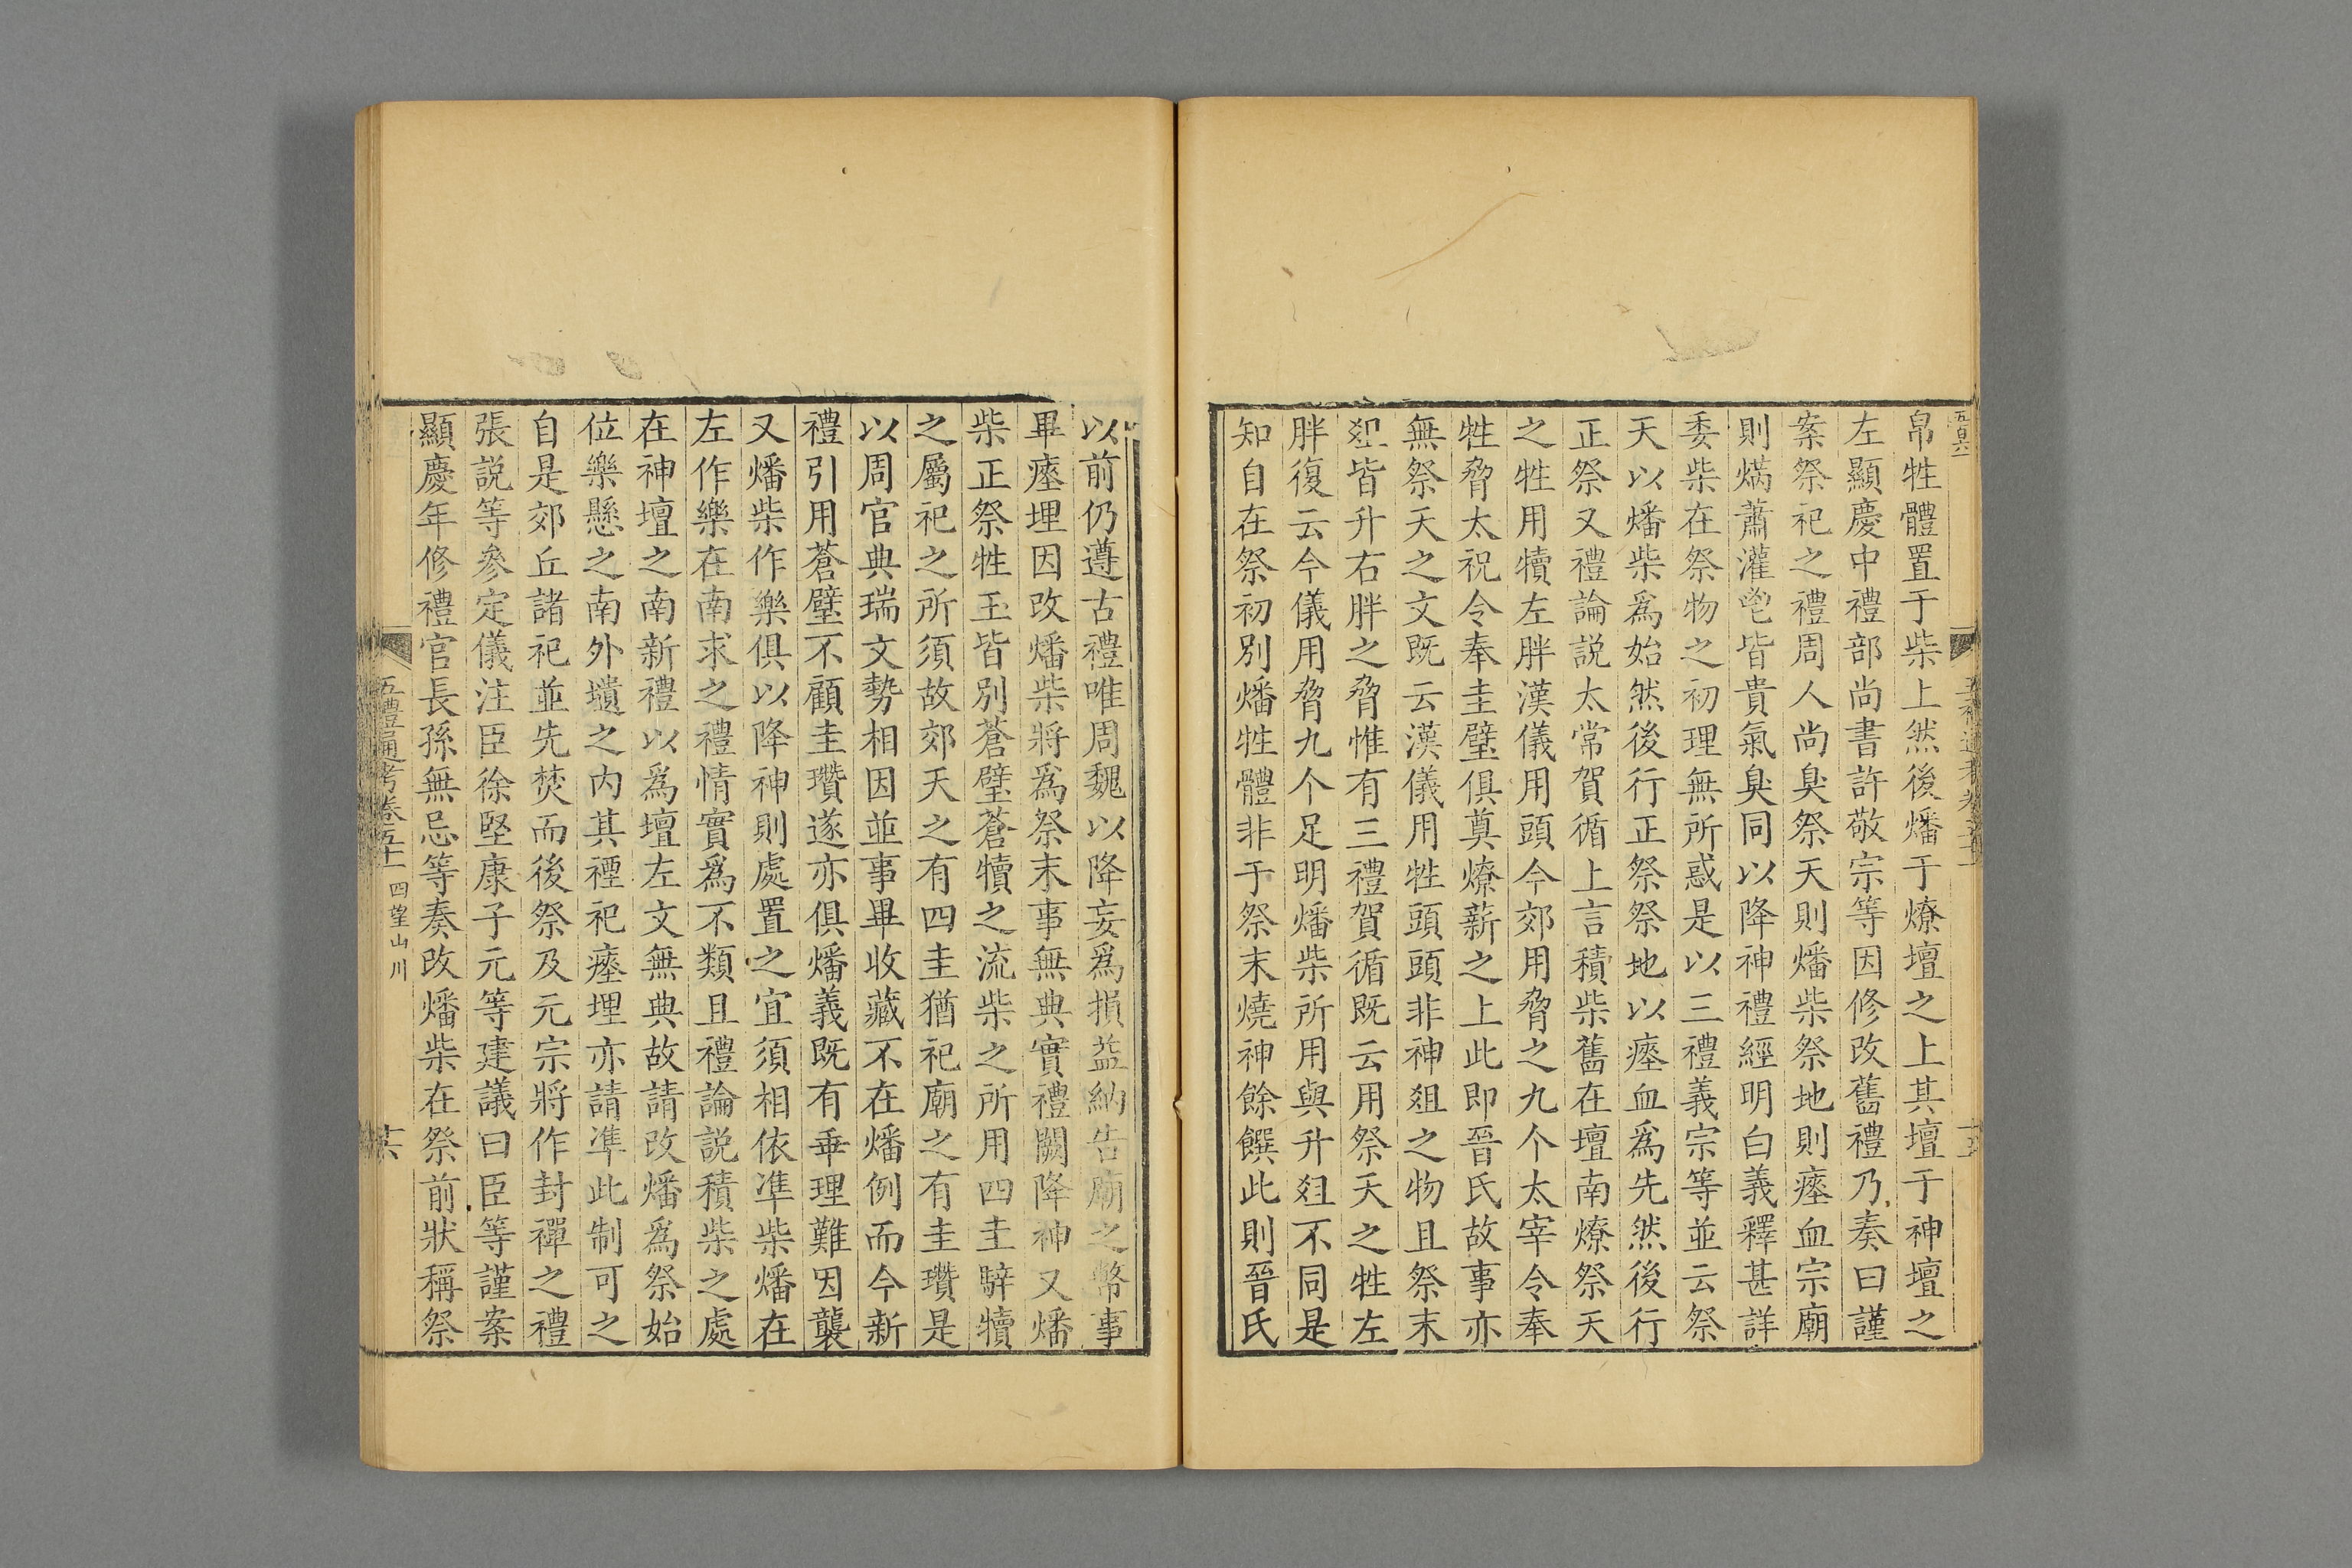 五百六
帛牲體置于柴上然後燔于燎壇之上其壇于神壇之
左顯慶中禮部尚書許敬宗等因修改舊禮乃奏曰謹
案祭祀之禮周人尚臭祭天則燔柴祭地則瘞血宗廟
則焫蕭灌鬯皆貴氣臭同以降神禮經明白義釋甚詳
委柴在祭物之初理無所惑是以三禮義宗等並云祭
天以燔柴爲始然後行正祭祭地以瘞血爲先然後行
正祭又禮論説太常賀循上言積柴舊在壇南燎祭天
之牲用犢左胖漢儀用頭今郊用脅之九个太宰令奉
牲脅太祝令奉圭璧俱奠燎薪之上此即晉氏故事亦
無祭天之文既云漢儀用牲頭頭非神俎之物且祭末
俎皆升右胖之脅惟有三禮賀循既云用祭天之牲左
胖復云今儀用脅九个足明燔柴所用與升俎不同是
知自在祭初别燔牲體非于祭末燒神餘饌此則晉氏
以前仍遵古禮唯周魏以降妄爲損益納告廟之幣事
畢瘞埋因改燔柴將爲祭末事無典實禮闕降神又燔
柴正祭牲玉皆别蒼璧蒼犢之流柴之所用四圭騂犢
之屬祀之所須故郊天之有四圭猶祀廟之有圭瓚是
以周官典瑞文勢相因並事畢收藏不在燔例而今新
禮引用蒼璧不顧圭瓚遂亦俱燔義既有乖理難因襲
又燔柴作樂俱以降神則處置之宜須相依準柴燔在
左作樂在南求之禮情實爲不類且禮論説積柴之處
在神壇之南新禮以爲壇左文無典故請改燔爲祭始
位樂懸之南外壝之内其禋祀瘞埋亦請準此制可之
自是郊丘諸祀並先焚而後祭及元宗將作封禪之禮
張説等參定儀注臣徐堅康子元等建議曰臣等謹案
顯慶年修禮官長孫無忌等奏改燔柴在祭前狀稱祭
五禮通考卷五十一 四望山川